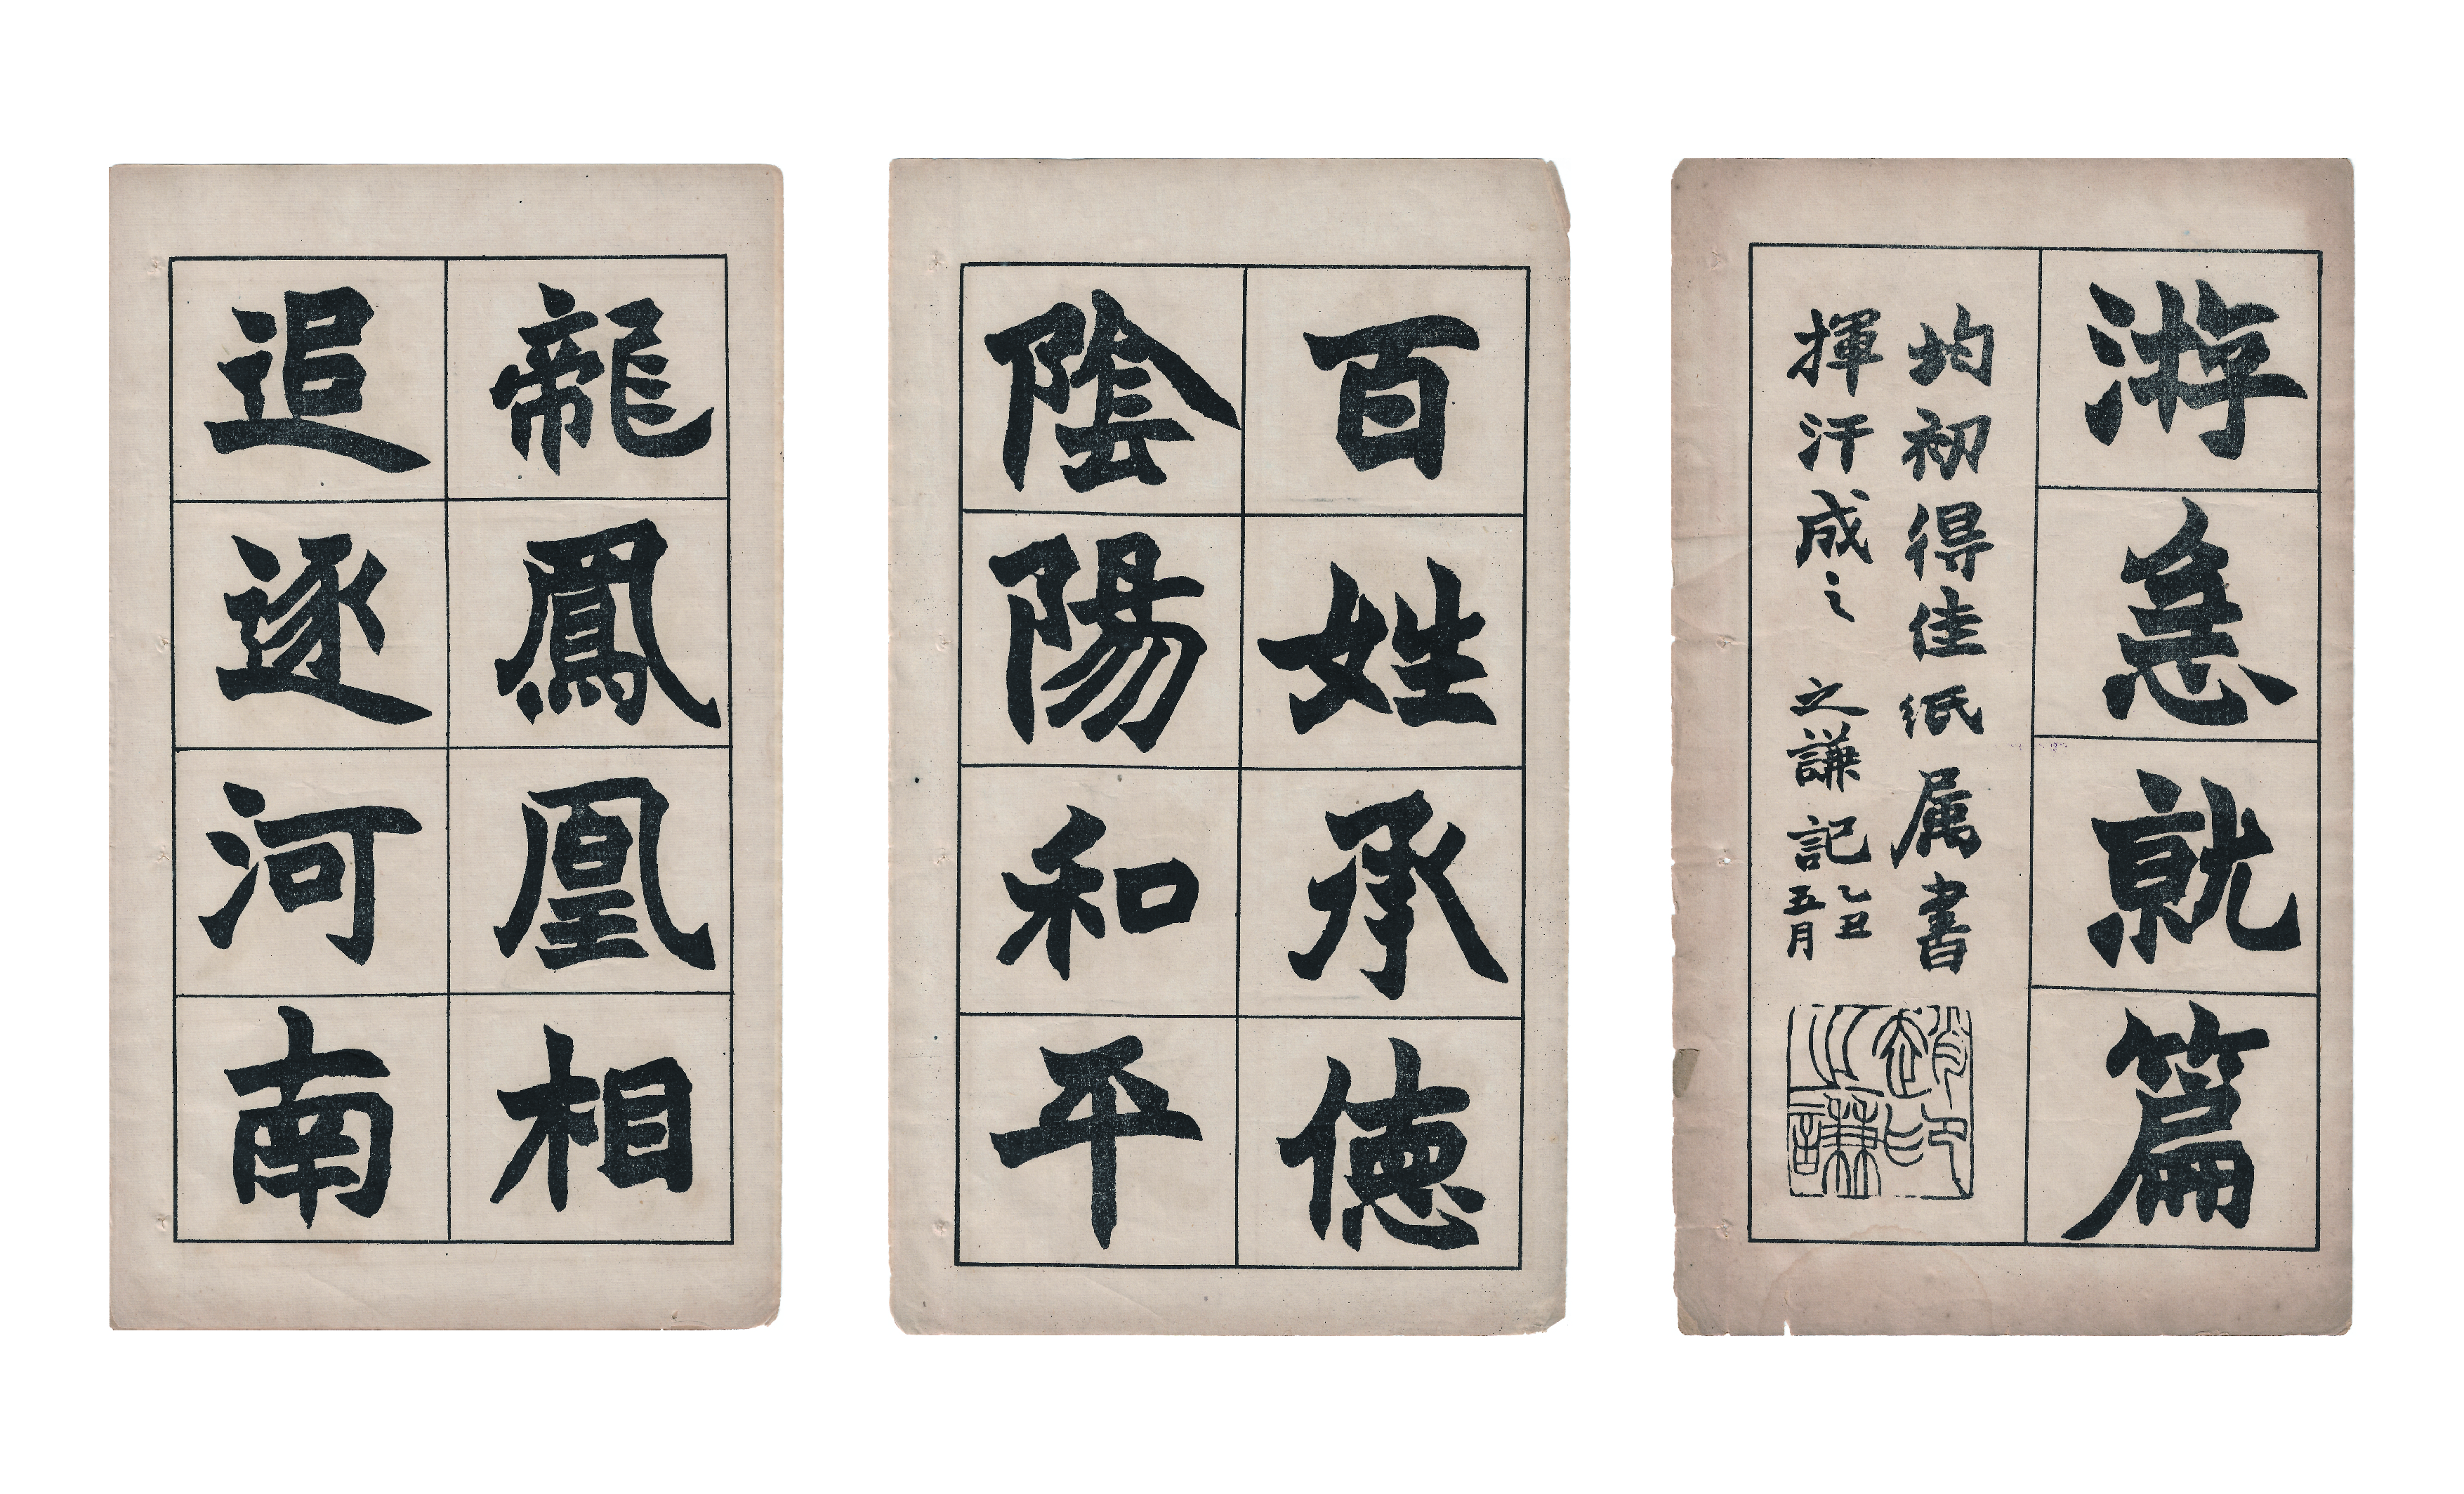 龍鳳凰相
追逐河南
百姓承徳
陰陽和平
游急就篇
均初得佳紙属書
揮汗成之 之謙記 乙丑
五月
趙印
之謙